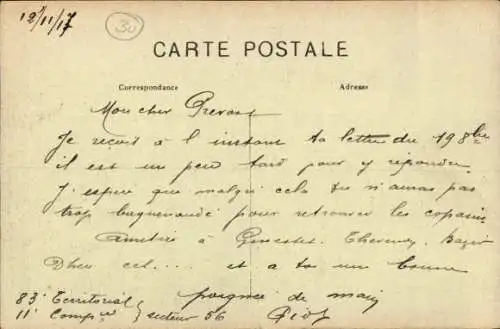 12/11/17
30
CARTE POSTALE
Correspondance
Adresse
Mon cher Prevost
Je reçoit à l'instant ta lettre du 19 8bre
il est un peu tard pour y repondre
J'espere que malgré cela tu n'auras pas
trop baguenaudé pour retrouver les copains
Amitiés à
et a toi une bonne
poignée de main
83e Territorial
11e Compie secteur 56